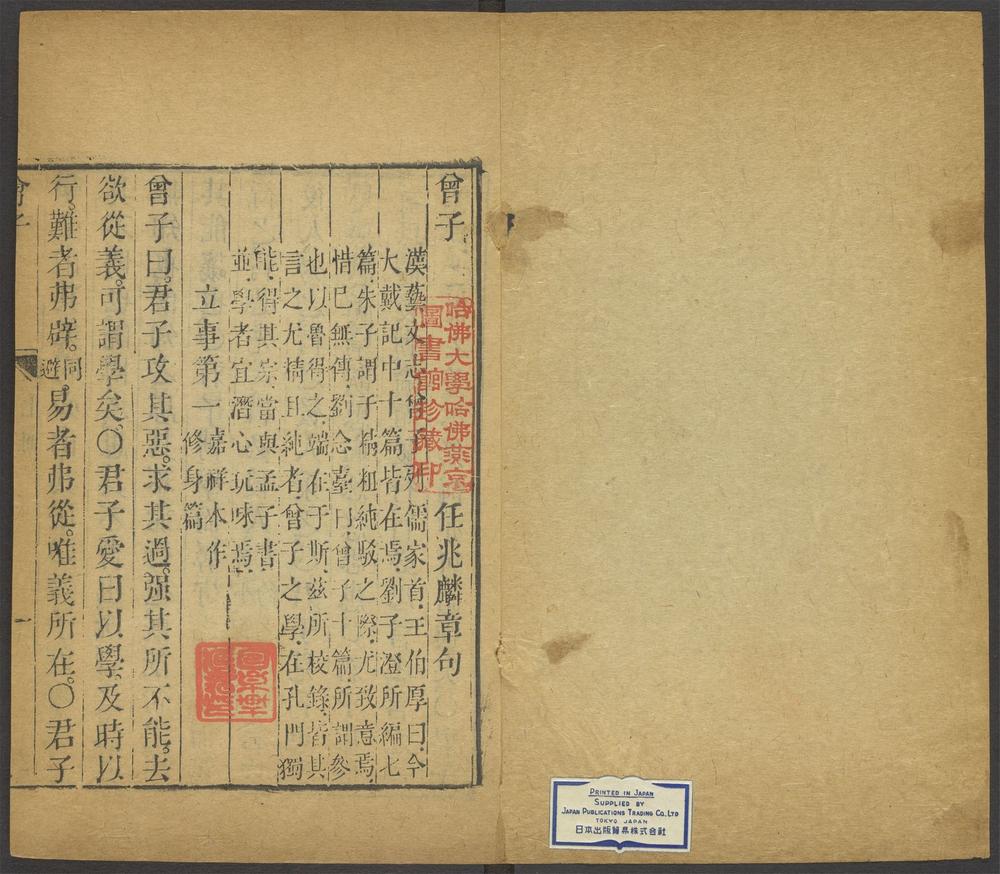 曾子
任兆麟章句
漢藝文志曾子列儒家首王伯厚曰今
大戴記中十篇皆在焉劉子澄所編七
篇朱子謂于精粗純駁之際尤致意焉
惜已無傳劉念臺曰曾子十篇所謂參
也以魯得之端在于斯茲所校錄皆其
言之尤精且純者曾子之學在孔門獨
能得其宗當與孟子書
並學者宜潛心玩味焉
立事第一
嘉祥本作
修身篇
曾子曰。君子攻其惡。求其過。强其所不能。去
欲從義。可謂學矣。〇君子愛日以學。及時以
行。難者弗辟。同避易者弗從。唯義所在。〇君子
曾子
一
哈佛大學哈佛燕京
圖書館珍藏印
PRINTED IN JAPAN
SUPPLIED BY
JAPAN PUBLICATIONS TRADING CO., LTD
TOKYO JAPAN
日本出版貿易株式会社